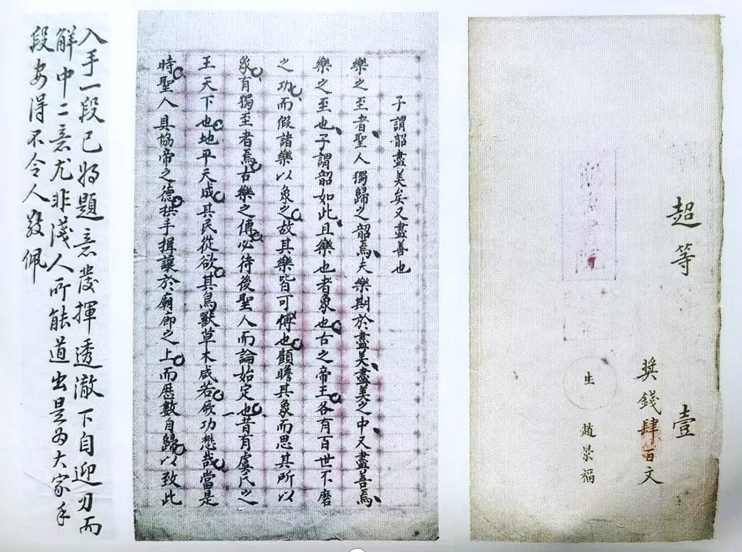 超等 壹
獎錢肆百文
生 趙景福
子謂韶盡美矣又盡善也
樂之至者聖人獨歸之韶焉夫樂期於盡美盡美之中又盡善焉
樂之至也子謂韶如此且樂也者象也古之帝王各有百世不磨
之功而假諸樂以象之故其樂皆可傳也顧瞻其象而思其所以
象有獨至者焉古樂之傳必待後聖人而論始定也昔有虞氏之
王天下也地平天成其民從欲其鳥獸草木咸若厥功懋哉當是
時聖人具協帝之德拱手揖讓於廟廊之上而歷數自歸以致此
入手一段已將題意發揮透澈下自迎刃而
解中二意尤非淺人所能道出是為大家手
段安得不令人佩